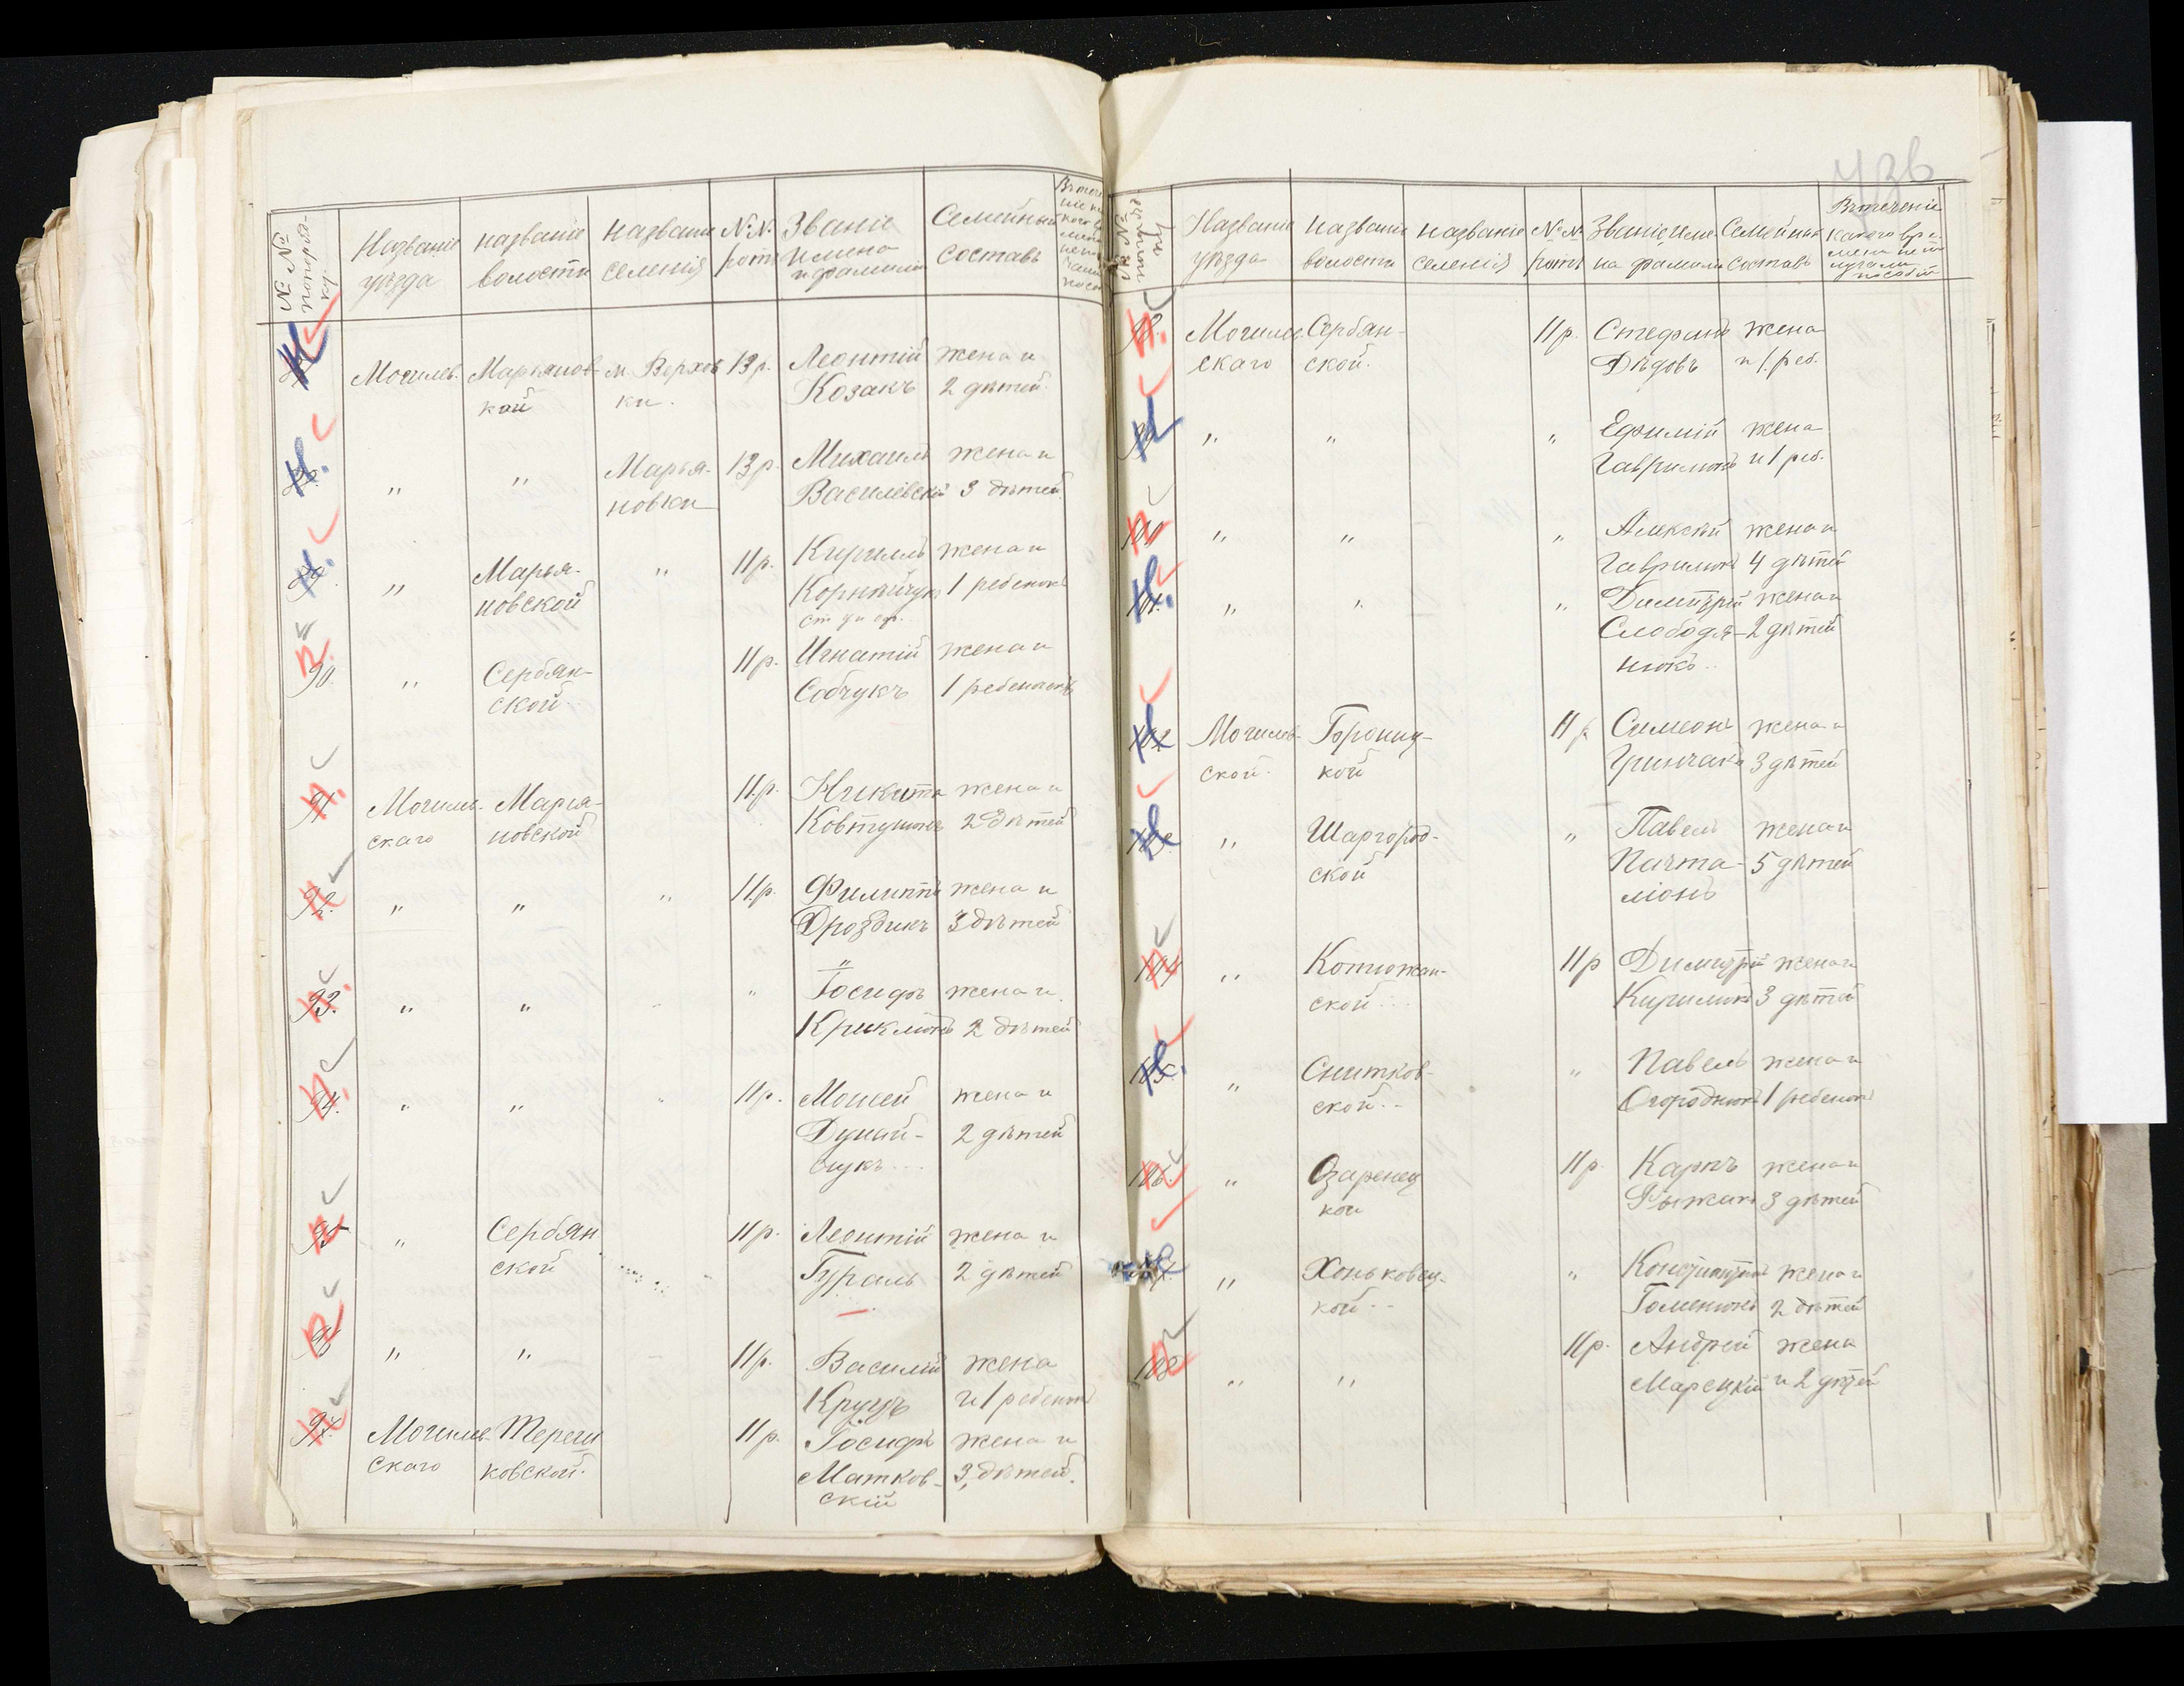 № № по поряд-
ку
Названіе
уѣзда
названіе
волости
названіе
селенія
№.№.
ротъ
Званіе
имена
и фамиліи
Семейный
составъ
Могилев.
Марьянов-
кой
м. Верхов-
ки.
13 р.
Леонтій
Козакъ
жена и
2 дѣтей.
"
"
Марья-
новки
13 р.
Михаилъ
Василевскій
жена и
3 дѣтей.
89.
"
Марья-
новской
"
11 р.
Кириллъ
Корнійчук
жена и
1 ребенокъ
90.
"
Сербян-
ской
11 р.
Игнатій
Собчукъ
жена и
1 ребенокъ
91.
Могилев-
скаго
Марья-
новской
11 р.
Никита
Ковтунюкъ
жена и
2 дѣтей
92.
"
"
"
11 р.
Филиппъ
Дроздикъ
жена и
3 дѣтей
93.
"
"
"
"
Іосифъ
Криклюкъ
жена и
2 дѣтей
94.
"
"
"
11 р.
Мойсей
Дунай-
чукъ
жена и
2 дѣтей
95
"
Сербян
ской
11 р.
Леонтій
Гураль
жена и
2 дѣтей
96
"
"
11 р.
Василій
Круцъ
жена
и 1 ребенокъ
97.
Могилев-
скаго
Тереш
ковской.
11 р.
Іосифъ
Матков-
скій
жена и
3 дѣтей.
436
Названіе
уѣзда
названіе
волости
названіе
селенія
№ №
ротъ
Званіе, име-
на фамиліи
Семейный
составъ
Въ теченіе
какого вре-
мени не по-
лучали
пособій
98.
Могилев-
скаго
Сербян-
ской.
11 р.
Стефанъ
Дѣдовъ
жена
и 1 реб.
99
"
"
"
Ефимій
Гаврилюкъ
жена
и 1 реб.
100
"
"
"
Алексѣй
Гаврилюкъ
жена и
4 дѣтей
101.
"
"
"
Димитрій
Слободя-
нюкъ..
жена и
2 дѣтей
102
Могилев-
ской.
Брониц-
кой
11 р
Симеонъ
Гринчакъ
жена и
3 дѣтей
103
"
Шаргород-
ской
"
Павелъ
Пачта-
ліонъ
жена и
5 дѣтей
104
"
Котюжан-
ской..
11 р
Димитрій
Кирилюкъ
жена и
3 дѣтей
105.
"
Снитков-
ской..
"
Павелъ
Огороднюкъ
жена и
1 ребенокъ
106.
"
Озаренец
кой
11 р.
Карпъ
Рыжакъ
жена и
3 дѣтей
"
Хоньковец-
кой..
"
Константинъ
Гоменюкъ
жена и
2 дѣтей
108
"
"
11 р.
Андрей
Марецкій
жена
и 2 дѣтей